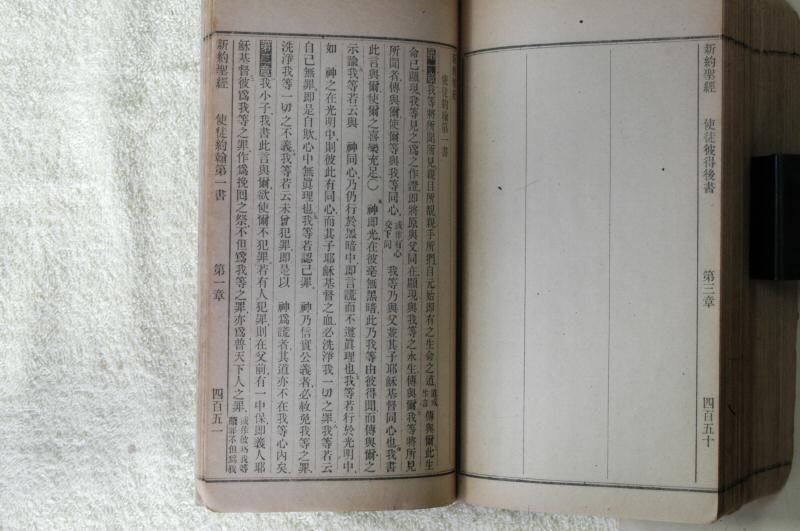 新約聖經 使徒彼得後書 第三章 四百五十
使徒約翰第一書
我等將所聞所見親目所覩親手所捫自元始即有之生命之道傳與爾此生
命已顯現我等見之爲之作證即將原與父同在顯現與我等之永生傳與爾我等將所見
所聞者傳與爾使爾等與我等同心我等乃與父並其子耶穌基督同心也我書
此言與爾使爾之喜樂充足〇 神即光在彼毫無黑暗此乃我等由彼得聞而傳與爾之
示諭我等若云與 神同心乃仍行於黑暗中即言謊而不遵眞理也我等若行於光明中
如 神之在光明中則彼此有同心而其子耶穌基督之血必洗淨我一切之罪我等若云
自己無罪即是自欺心中無眞理也我等若認己罪 神乃信實公義者必赦免我等之罪
洗淨我等一切之不義我等若云未曾犯罪即是以 神爲謊者其道亦不在我等心內矣
第二章我小子我書此言與爾欲使爾不犯罪若有人犯罪則在父前有一中保即義人耶
穌基督彼爲我等之罪作爲挽囘之祭不但爲我等之罪亦爲普天下人之罪
新約聖經 使徒約翰第一書 第一章 四百五一